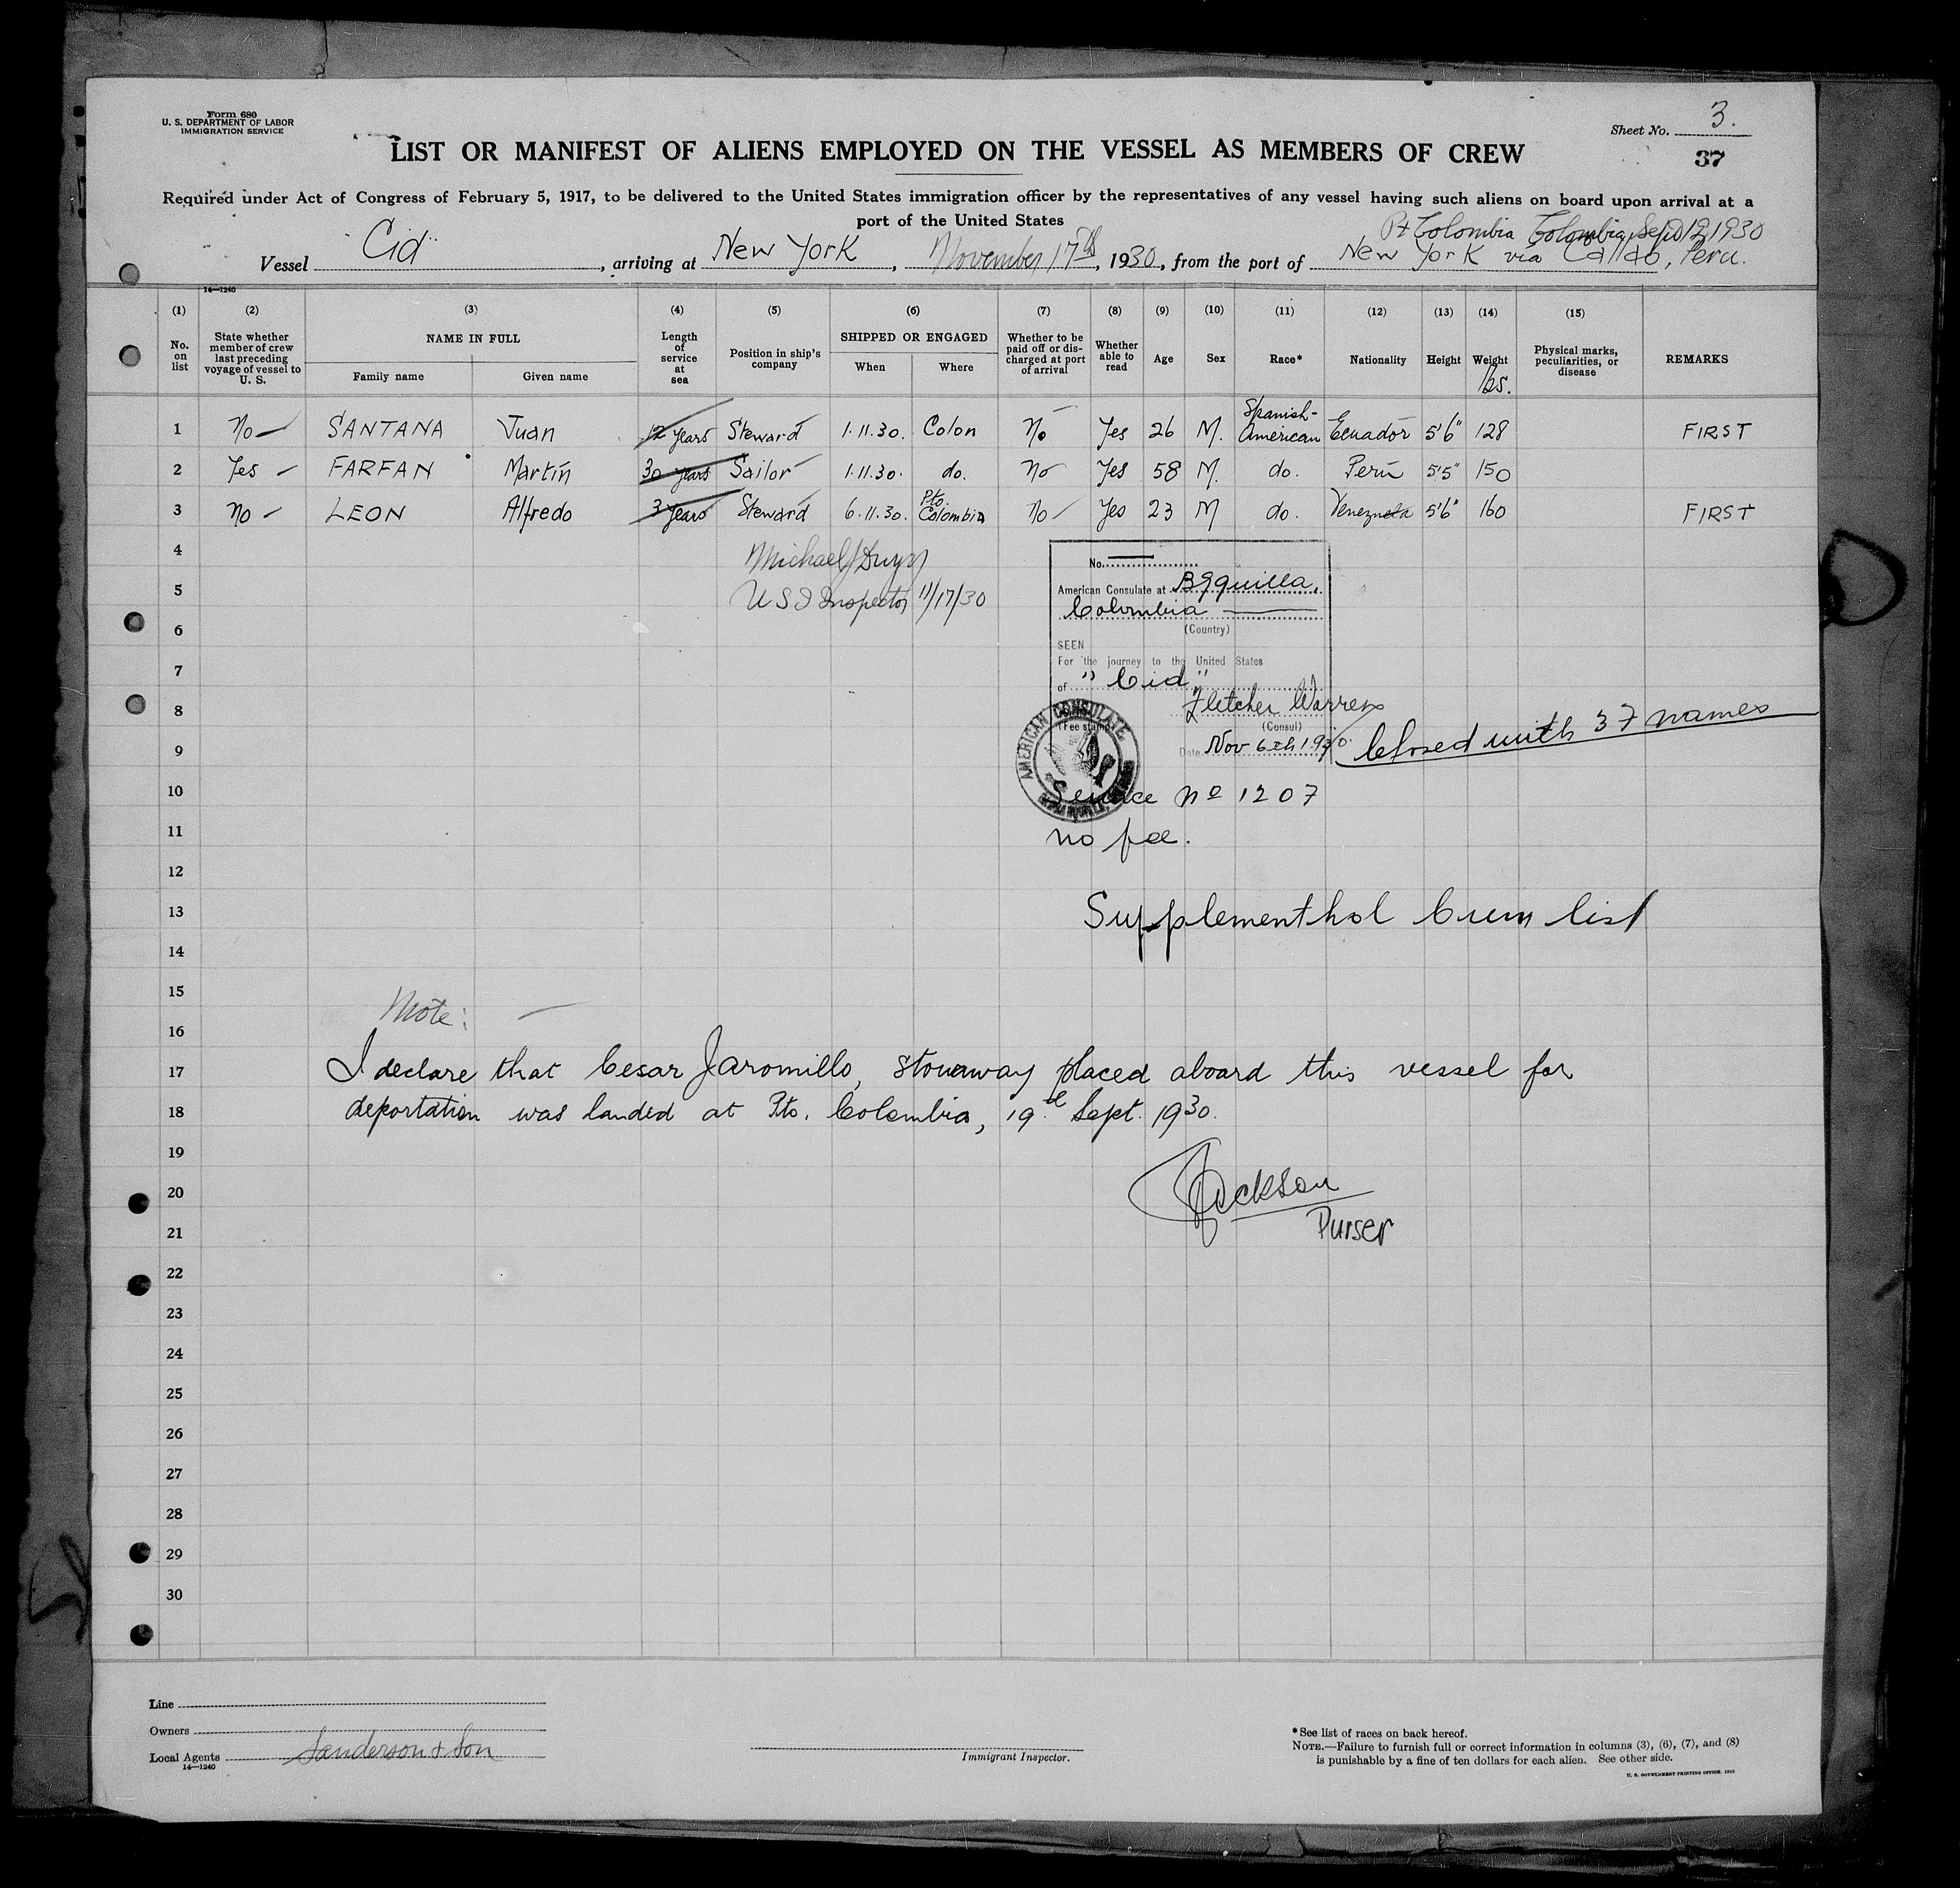 Form 680
U. S. DEPARTMENT OF LABOR
IMMIGRATION SERVICE
Sheet No. 3.
37
LIST OR MANIFEST OF ALIENS EMPLOYED ON THE VESSEL AS MEMBERS OF CREW
Required under Act of Congress of February 5, 1917, to be delivered to the United States immigration officer by the representatives of any vessel having such aliens on board upon arrival at a
port of the United States
Pt Colombia Colombia, Sept 12, 1930
Vessel "Cid", arriving at New York, November 17th, 1930, from the port of New York via Callao, Peru.
14—1240
(1) (2) (3) (4) (5) (6) (7) (8) (9) (10) (11) (12) (13) (14) (15)
No. on list State whether member of crew last preceding voyage of vessel to U. S. NAME IN FULL Family name Given name Length of service at sea Position in ship's company SHIPPED OR ENGAGED When Where Whether to be paid off or discharged at port of arrival Whether able to read Age Sex Race* Nationality Height Weight lbs. Physical marks, peculiarities, or disease REMARKS
1 No SANTANA Juan 12 years Steward 1.11.30. Colon No Yes 26 M. Spanish-American Ecuador 5'6" 128 FIRST
2 Yes FARFAN Martin 30 years Sailor 1.11.30. do. No Yes 58 M. do. Peru 5'5" 150
3 No LEON Alfredo 3 years Steward 6.11.30. Pto. Colombia No Yes 23 M do. Venezuela 5'6" 160 FIRST
4
Michael J
5
U S I Inspector 11/17/30
No.
American Consulate at B/quilla,
Colombia
(Country)
6
SEEN
7
For the journey to the United States
of "Cid"
8
Fletcher Warren
(Consul)
(Fee stamp)
AMERICAN CONSULATE
9
Date Nov 6th 1930.
Closed with 37 names
10
Service No 1207
11
no fee.
12
13
Supplementhol Crew list
14
15
Note: —
16
17 I declare that Cesar Jaromillo, stowaway placed aboard this vessel for
18 deportation was landed at Pto. Colombia, 19th Sept. 1930.
19
20 Jackson
21 Purser
22
23
24
25
26
27
28
29
30
Line
Owners
Local Agents Sanderson & Son
14—1240
Immigrant Inspector.
*See list of races on back hereof.
NOTE.—Failure to furnish full or correct information in columns (3), (6), (7), and (8)
is punishable by a fine of ten dollars for each alien. See other side.
U. S. GOVERNMENT PRINTING OFFICE: 1930